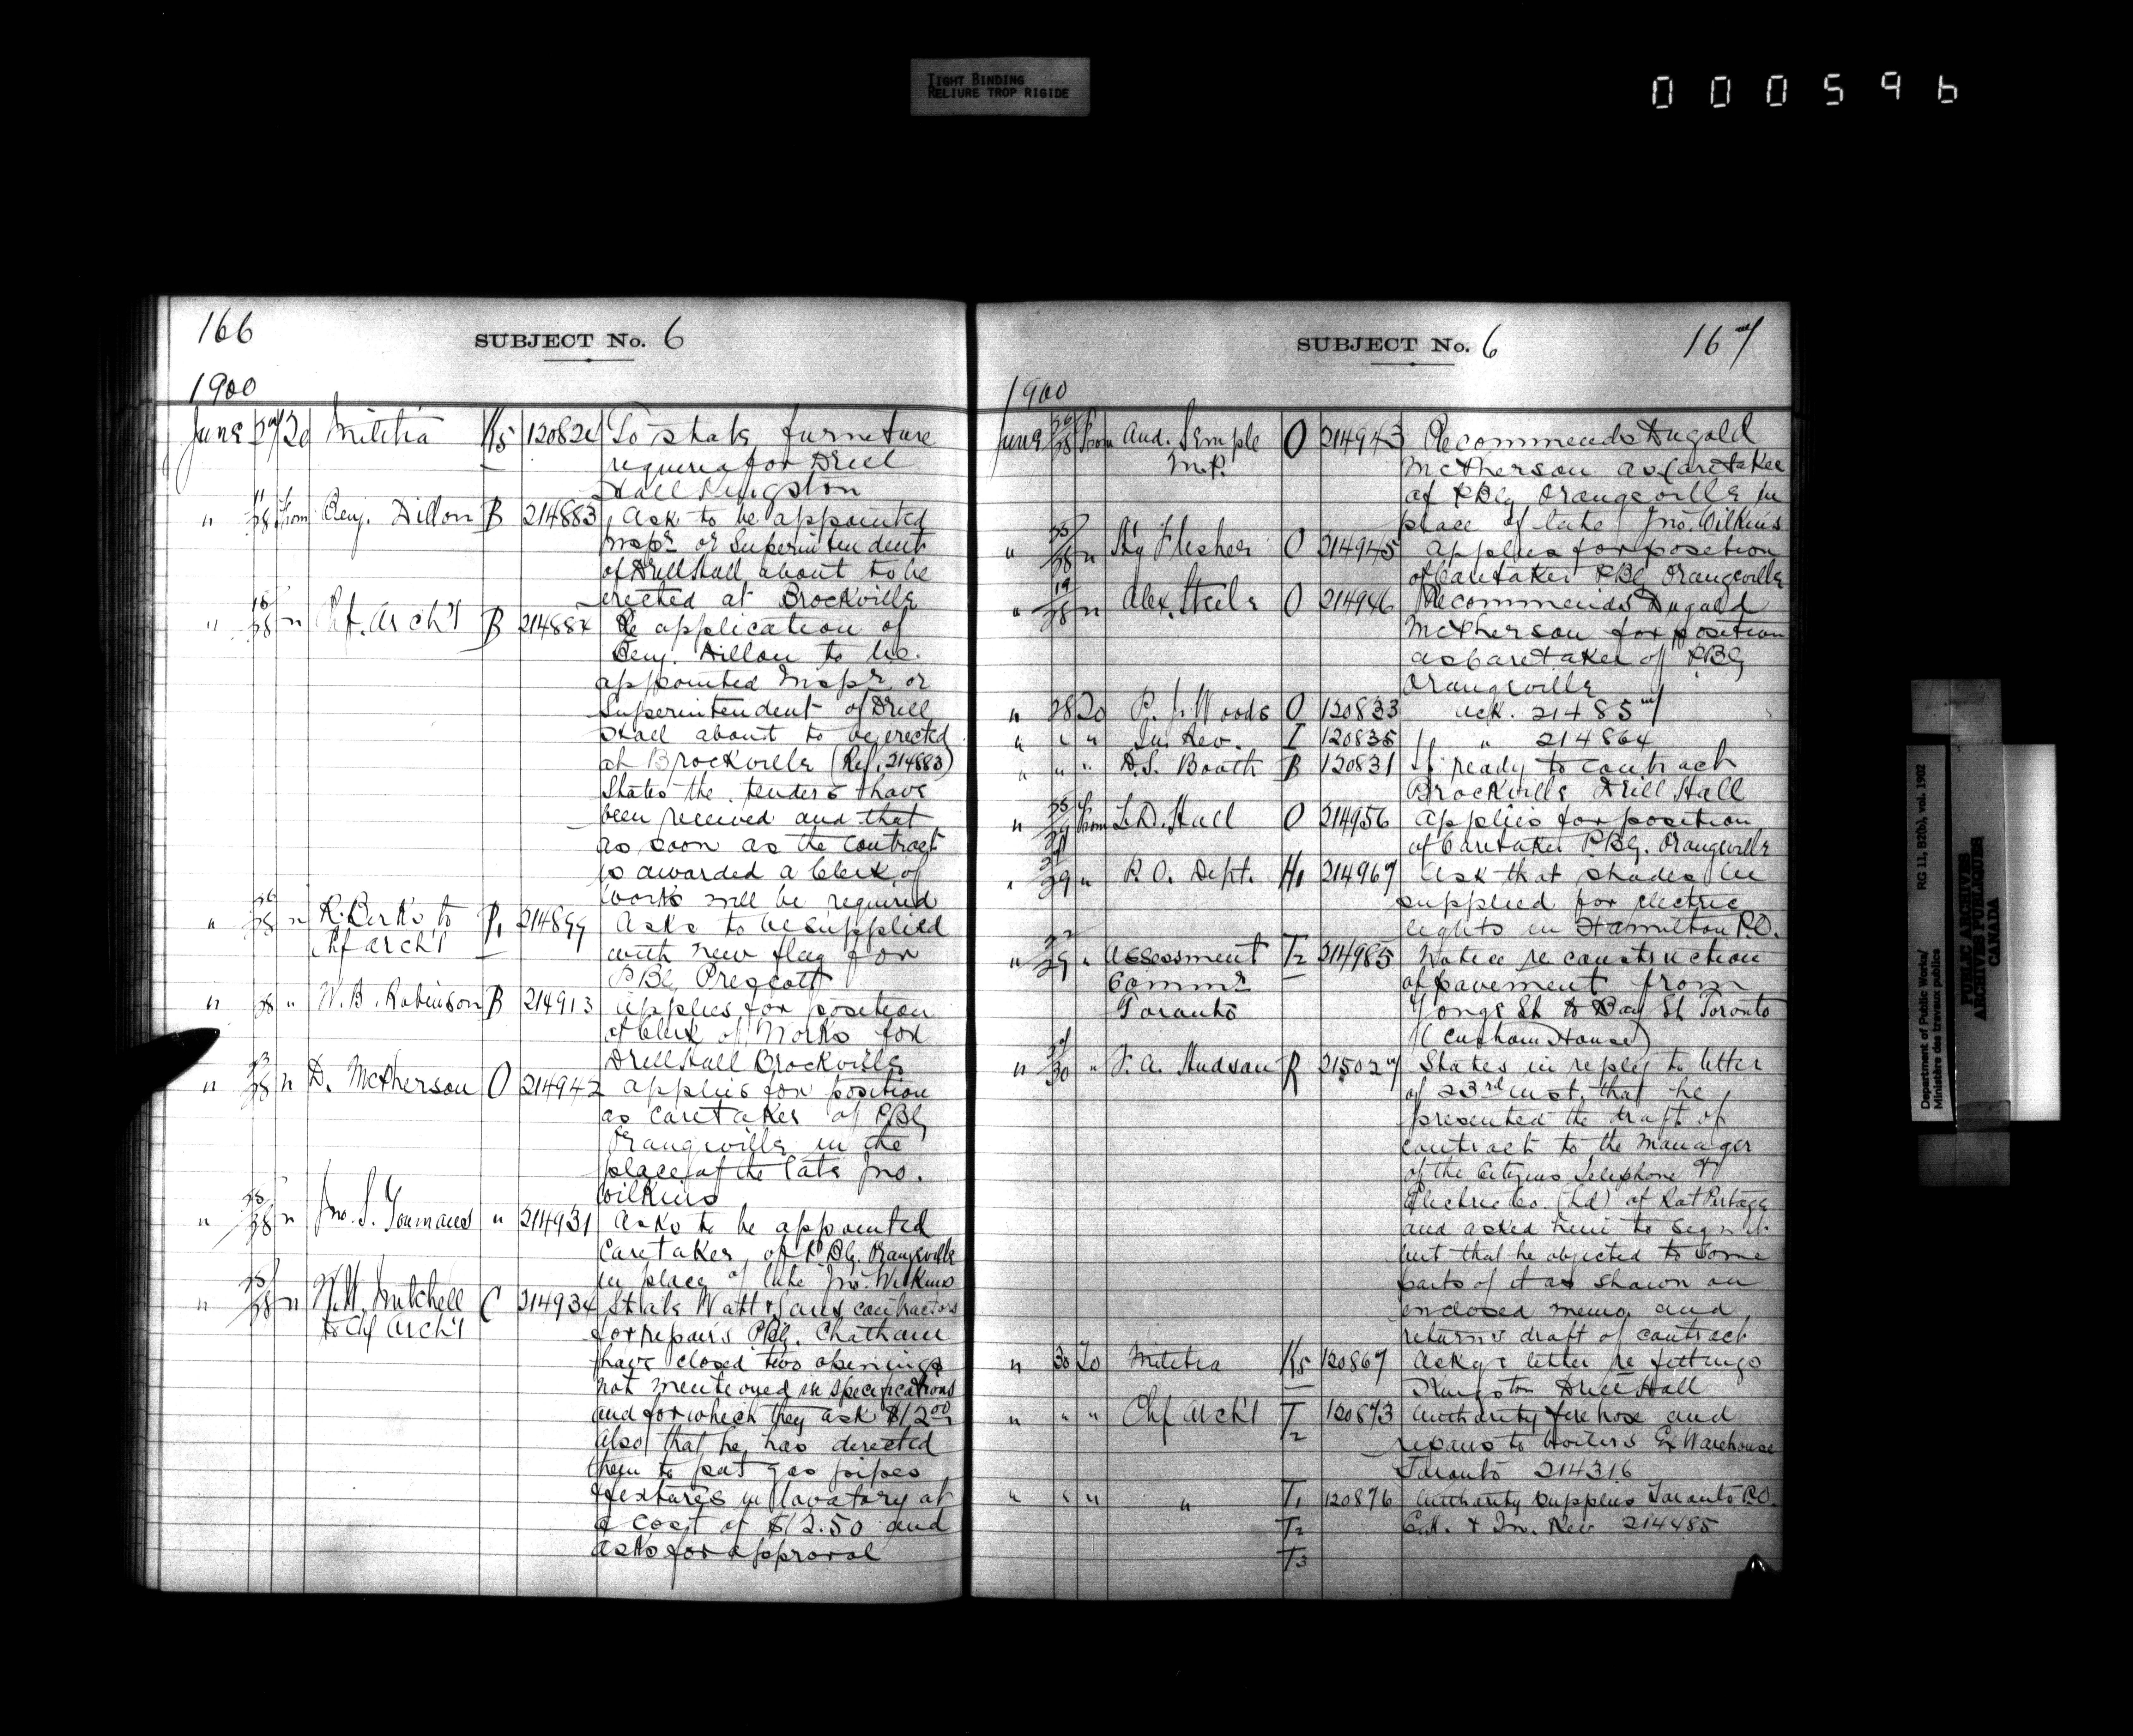 TIGHT BINDING
RELIURE TROP RIGIDE
000596
166
SUBJECT No. 6
1900
June 27 To Militia K5 120824 To state furniture
required for Drill
Hall Kingston
" 11/28 From Benj. Dillon B 214883 Ask to be appointed
Inspr or Superintendent
of Drill Hall about to be
erected at Brockville
" 18/28 " Chf. Arch't B 214884 Re application of
Benj. Dillon to be
appointed Inspr or
Superintendent of Drill
Hall about to be erected
at Brockville (Ref. 214883)
States the tenders have
been received and that
as soon as the contract
is awarded a Clerk of
Works will be required
" 26/28 " R. Berks to P1 214899 Asks to be supplied
Chf arch't with new flag for
P.Bg Prescott
" 28 " W. B. Robinson B 214913 applies for position
of Clerk of Works for
Drill Hall Brockville
" 28 " D. McPherson O 214942 applies for position
as caretaker of P.Bg
Orangeville in the
place of the late Jno.
Wilkins
" 25/28 " Jno. S. Youmans " 214931 Asks to be appointed
Caretaker of P.Bg. Orangeville
in place of late Jno. Wilkins
" 25/28 " Mitchell C 214934 State Watt & Sons contractors
to Chf Arch't for repairs P.Bg. Chatham
have closed two openings
not mentioned in specifications
and for which they ask $12.00
Also that he has directed
them to put gas pipes
& fixtures in lavatory at
a cost of $12.50 and
asks for approval
SUBJECT No. 6
167
1900
June 26/28 From And. Semple O 214943 Recommends Dugald
M.P. McPherson as Caretaker
of P.Bg Orangeville in
place of late Jno. Wilkins
" 25/28 " Hy Flesher O 214945 applies for position
of Caretaker P.Bg Orangeville
" 19/28 " Alex. Steele O 214946 Recommends Dugald
McPherson for position
as Caretaker of P.Bg
Orangeville
" 28 To P. J. Woods O 120833 ack. 214857
" " " In. Rev. I 120835 " 214864
" " " D.S. Booth B 120831 If ready to contract
Brockville Drill Hall
" 25/29 From L.D. Hall O 214956 applies for position
of Caretaker P.Bg. Orangeville
" 29 " P.O. Dept. H1 214967 Ask that shades be
supplied for electric
lights in Hamilton P.O.
" 29 " Assessment T2 214985 Notice re construction
Commr of pavement from
Toronto Yonge St to Bay St Toronto
(Custom House)
" 30 " F. A. Hudson R 215027 States in reply to letter
of 23rd inst. that he
presented the draft of
contract to the Manager
of the Citizens Telephone &
Electric Co. (Ld) of Rat Portage
and asked him to sign it
but that he objected to some
parts of it as shown on
enclosed memo and
returns draft of contract
" 30 To Militia K5 120867 Ackg. letter re fittings
Kingston Drill Hall
" " " Chf Arch't T2 120873 Authority fire hose and
repairs to boilers Ex Warehouse
Toronto 214316
" " " " T1 120876 Authority supplies Toronto P.O.
T2 C.H. & In. Rev 214485
T3
Department of Public Works/
Ministère des travaux publics
RG 11, B2(b), vol. 1902
PUBLIC ARCHIVES
ARCHIVES PUBLIQUES
CANADA